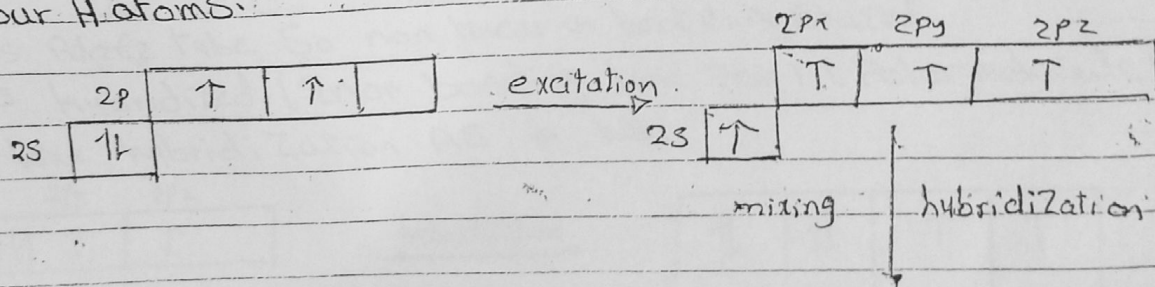 our H.atoms.
2px 2py 2pz
2p ↑ ↑ excitation ↑ ↑ ↑
2s ↑↓ 2s ↑
mixing hybridization